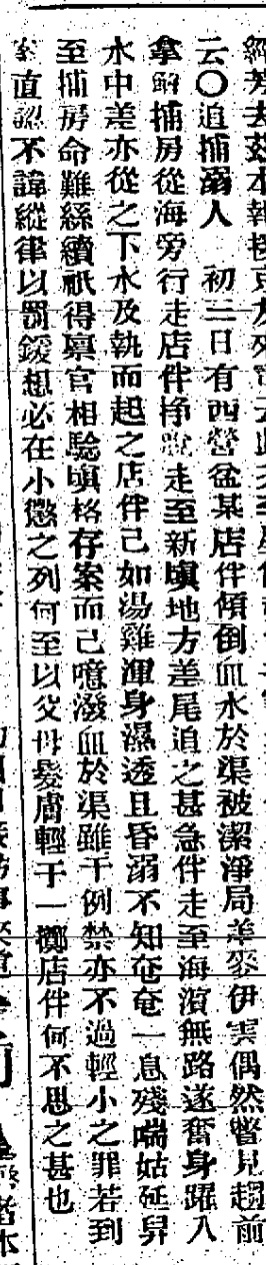 云〇追捕溺人　初三日有西營盆某店伴傾倒血水於渠被潔淨局差麥伊雲偶然瞥見趨前
拿解捕房從海旁行走店伴掙脫走至新填地方差尾追之甚急伴走至海濱無路遂奮身躍入
水中差亦從之下水及執而起之店伴已如湯雞渾身濕透且昏溺不知奄奄一息殘喘姑延舁
至捕房命難絲續祇得稟官相驗填格存案而已噫潑血於渠雖干例禁亦不過輕小之罪若到
案直認不諱縱律以罰鍰想必在小懲之列何至以父母髮膚輕于一擲店伴何不思之甚也